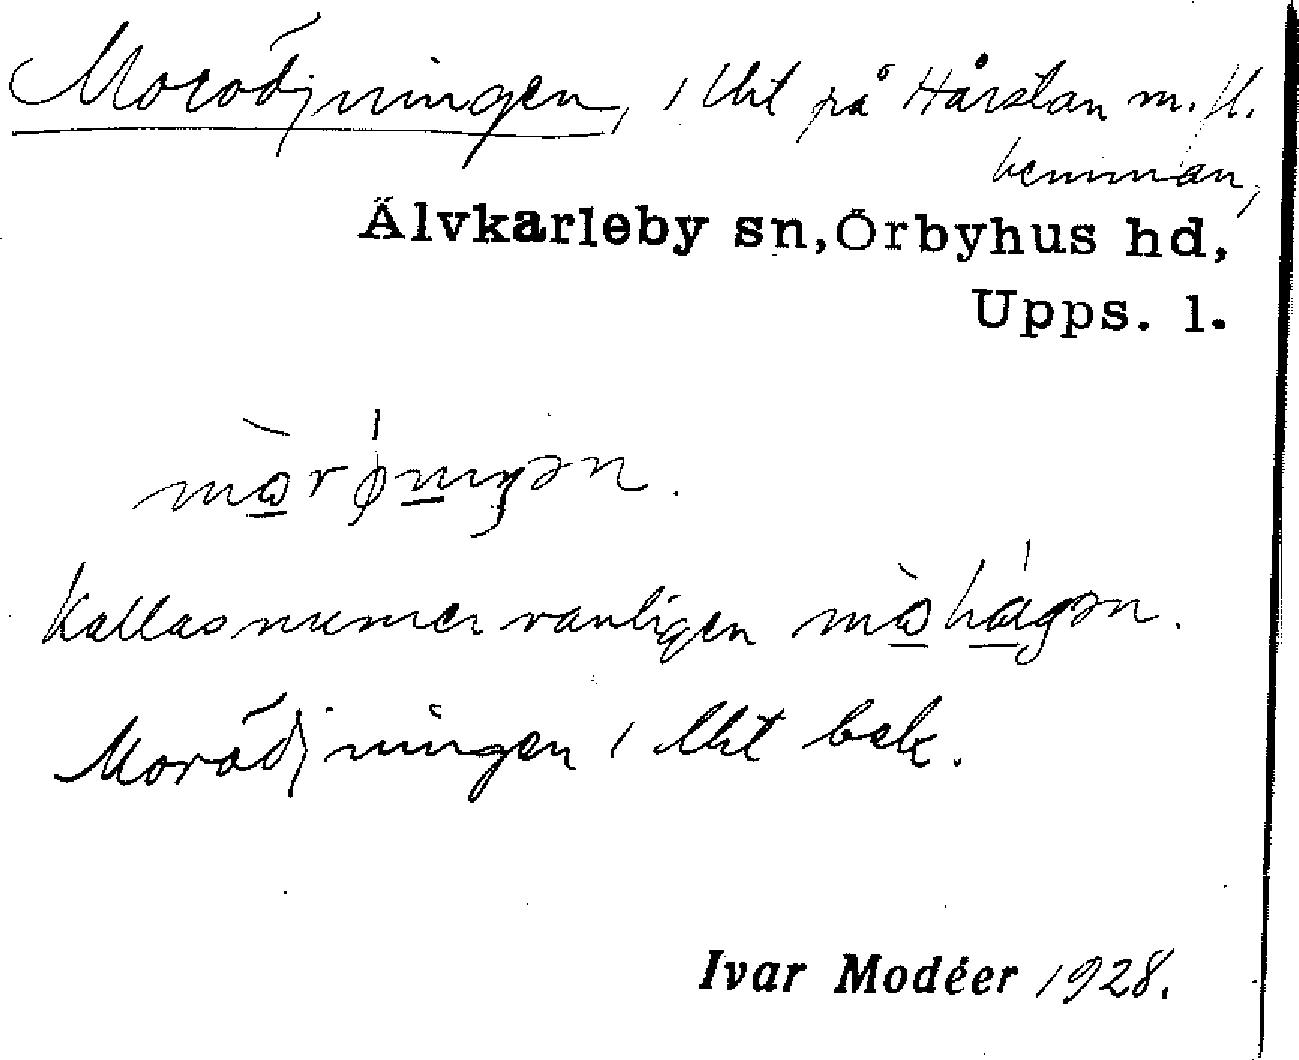 Moroöjningen, 1 lht på Hårstan m. fl.
hemman,
Älvkarleby sn, Örbyhus hd,
Upps. l.
mòrǿningən.
Kallas numer vanligen mòhágən.
Moroöjningen 1 lht bek.
Ivar Modéer 1928.